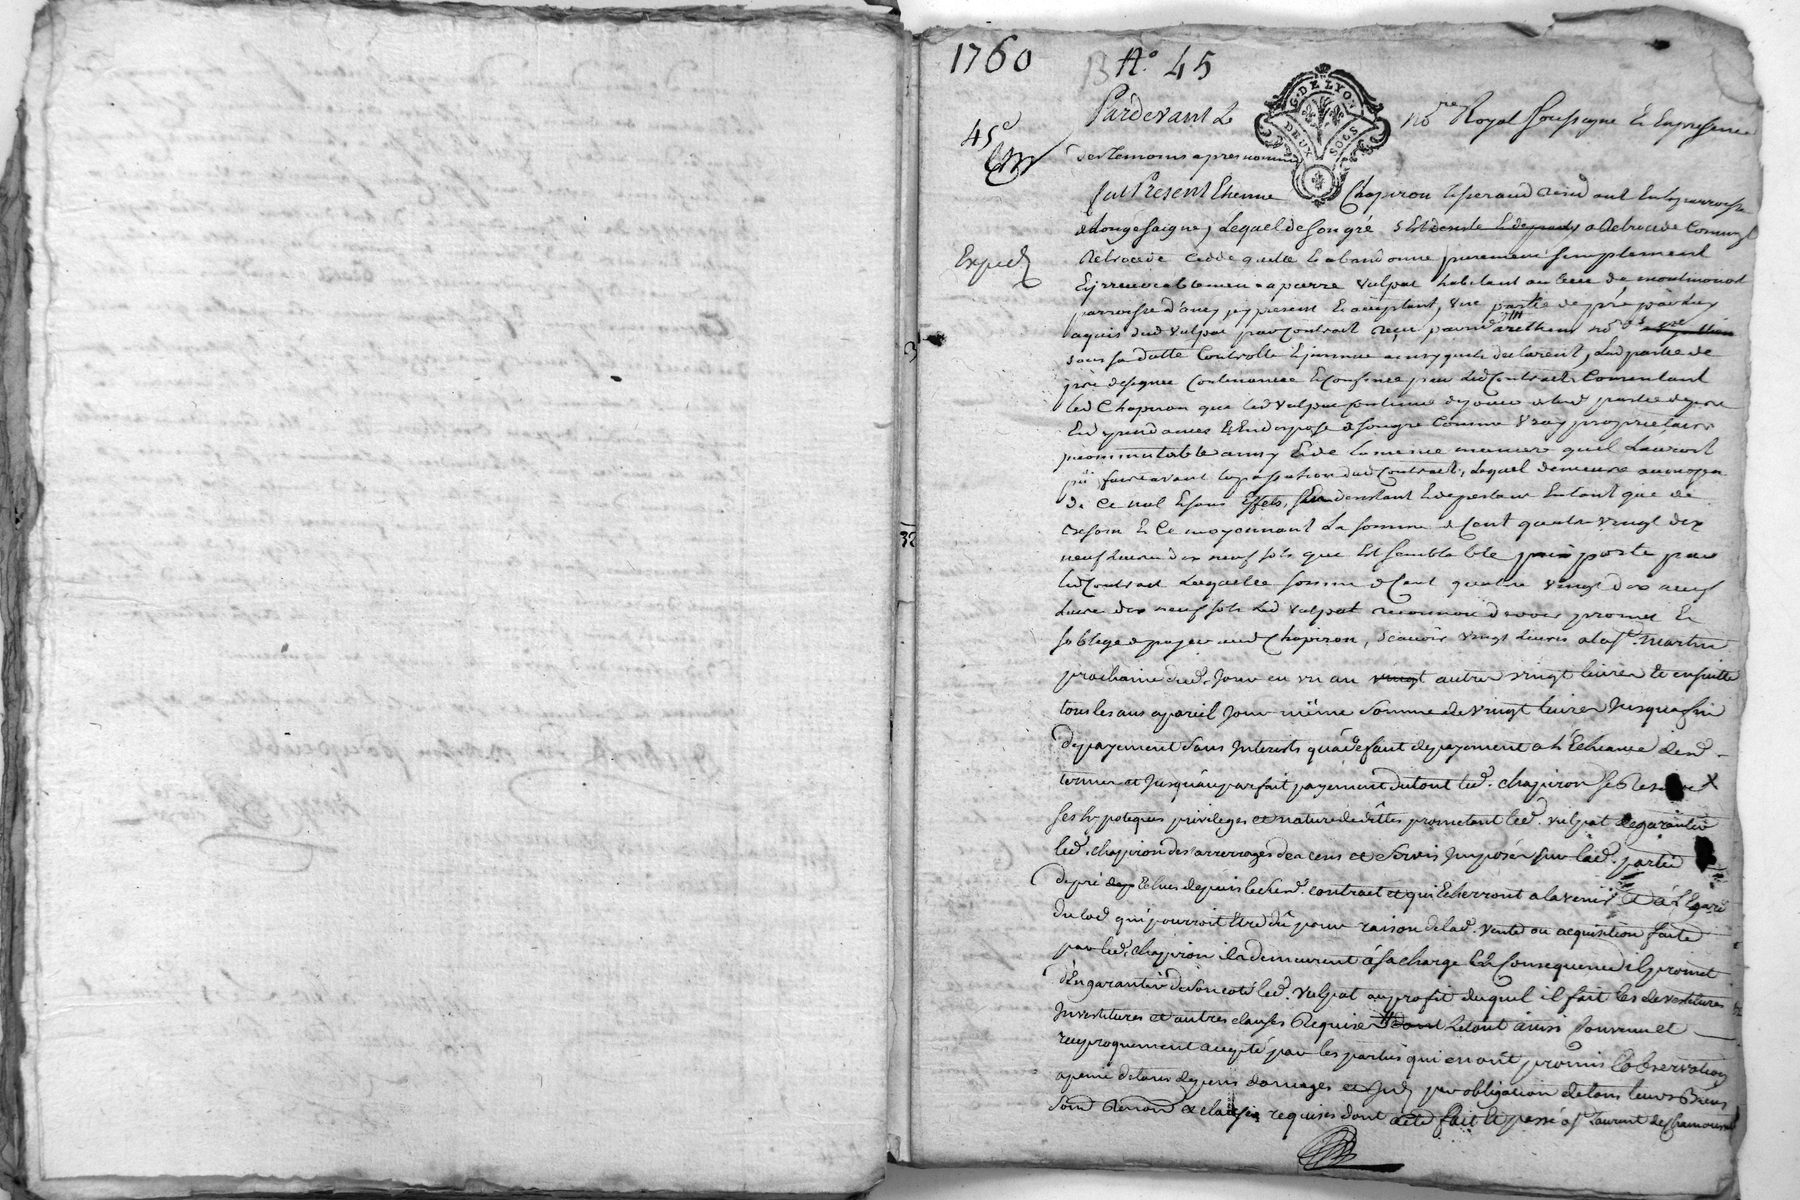 1760
N° 45
45e
G. DE LYON
DEUX SOLS
Pardevant Le nore Royal Soussigné Et En presence
des temoins apres nommés
fut Present Etienne Chapiron tisserand residant En la parroisse
de Longesaigne, Lequel de son gré
Expedié
Retrocede cedde quitte Et abandonne purement simplement
Et irrevocablement a pierre Vulpat habitant au lieu de montmonot
parroisse d'ancy, y present Et acceptant, Une partie de pré par luy
aquis dud Vulpat par contract reçu par
sous sa datte Controllé Et insinué ainsy quils declarent, Lad partie de
pré designée Contenancée Et Confinée par led Contract, Consentant
led Chapiron que led Vulpat Continue de jouir de lad partie de pré
Et dependances Et En dispose de son gré Comme Vray proprietaire
incommutable ainsy Et de la meme maniere quil Lauroit
pû faire avant la passation dud Contract, Lequel demeure
de ce nul Et sans Effets, sen desistant Et departant En tant que de
besoin Et Ce moyennant La somme de Cent quatre Vingt dix
neuf Livres dix neuf sols que Est semblable prix porté par
led Contract Laquelle somme de Cent quatre vingt dix neuf
Livres dix neuf sols led Vulpat reconnoit devoir promet Et
soblige de payer aud Chapiron, Scavoir Vingt Livres a la st. Martin
prochaine dud. Jour en un an vingt autres vingt livres Et ensuitte
tous les ans a pareil Jour même Somme de Vingt livres Jusqua fin
de payement Sans Interests qu'a defaut de payement a l'Echeance desd
termes et Jusqu'au parfait payement du tout led. chapiron se Reserve X
ses hypoteques privileges et nature de dettes prometant led. vulpat de garantir
led. chapiron des arrerrages des cens et Servis Imposés sur lad. partie
de pré Echus depuis led. contract et qui Echerront a lavenir Et a l'Egard
du lod qui pourroit Etre dû pour raison de lad. vente ou acquisition faite
par led. chapiron il demeurent a sa charge En Consequence il promet
d'En garantir de son coté led. Vulpat au profit duquel il fait les devestitures
Investitures et autres clauses Requises dont Letout ainsi Convenu et
reciproquement accepté par les parties qui en ont promis l'observation
a peine de tous depens domages et Intd par obligation de tous leurs Biens
Soud Renond et clauses requises dont acte fait et passé a st Laurent de Chamousset